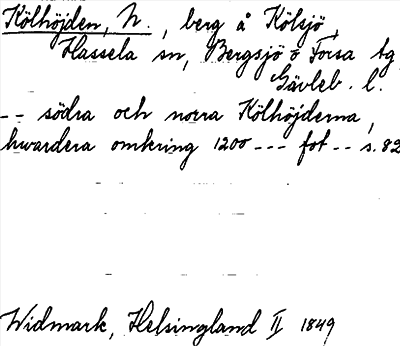 Kölhöjden, N., berg å Kölsjö,
Hassela sn, Bergsjö o Forsa tg
Gävleb. l.
-- södra och norra Kölhöjderna,
hwardera omkring 1200 --- fot -- s. 82
Widmark, Helsingland II 1849